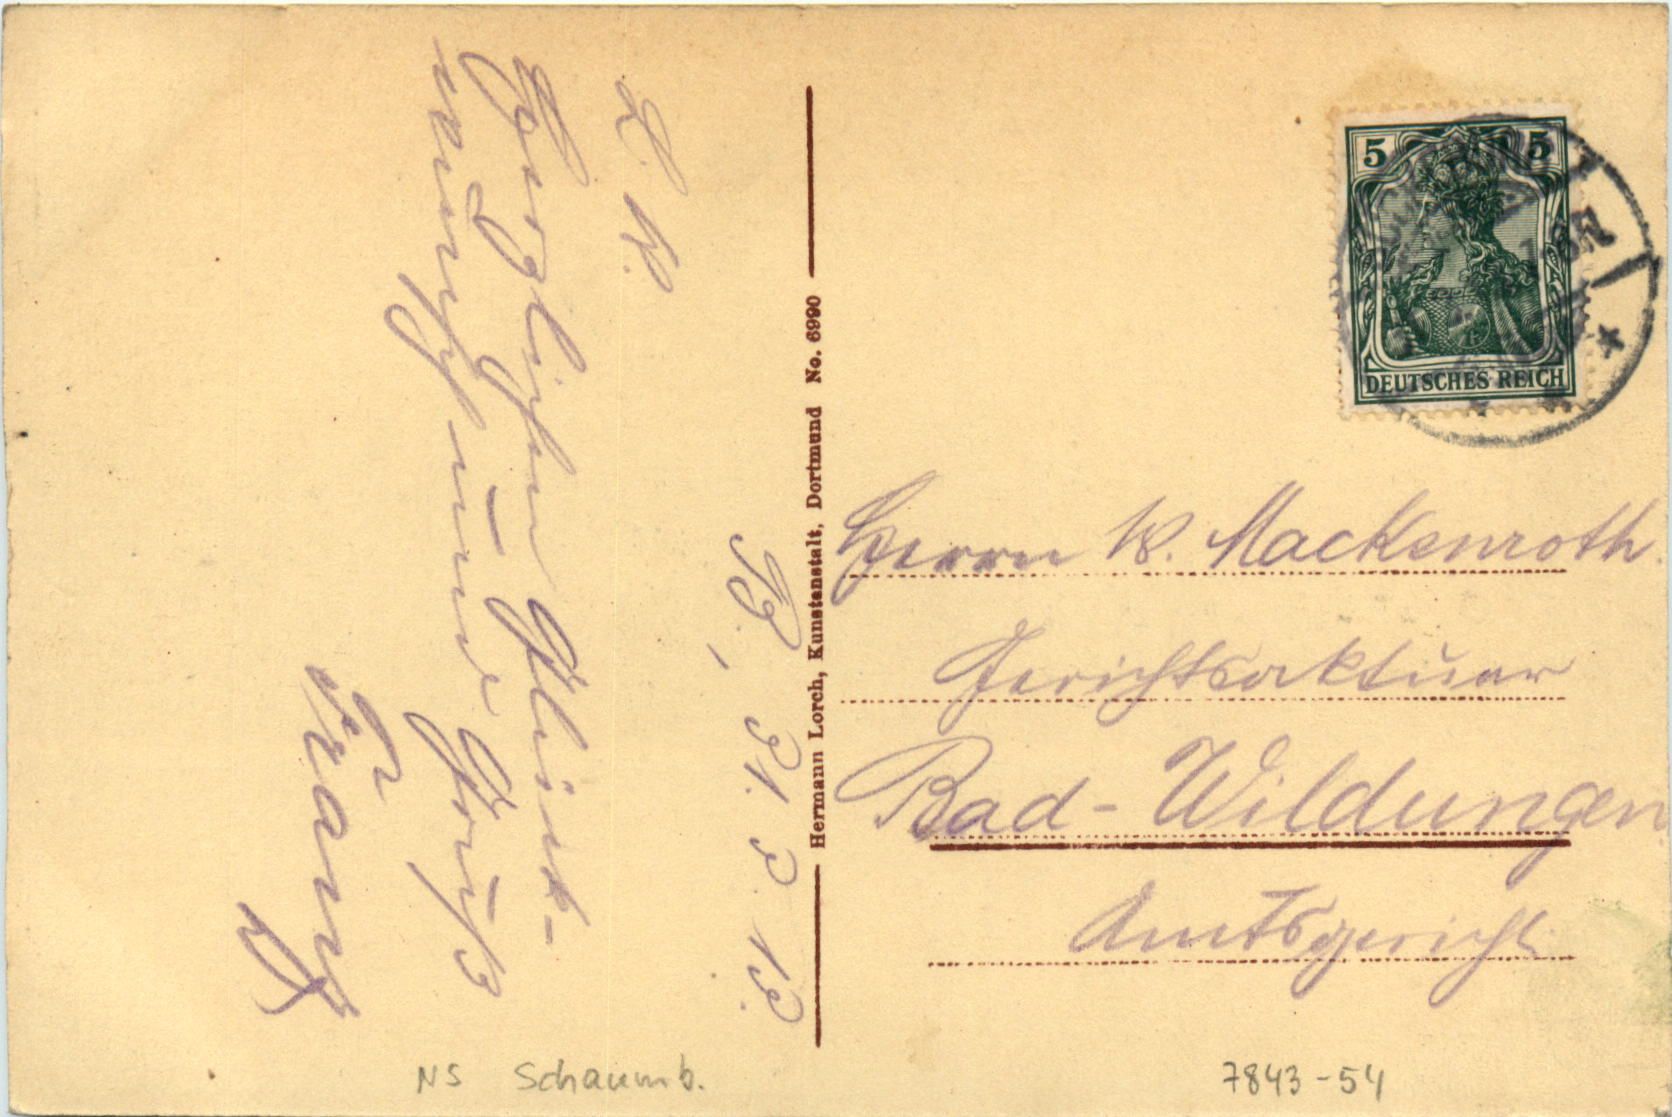 B., 31. 3. 13.
L. W.
Herzlichen Glück-
wunsch und Gruß
Franz
Hermann Lorch, Kunstanstalt, Dortmund No. 6990
5 5
DEUTSCHES REICH
Herrn W. Mackenroth
Gerichtsaktuar
Bad-Wildungen
Amtsgericht.
NS Schaumb.
7843-54